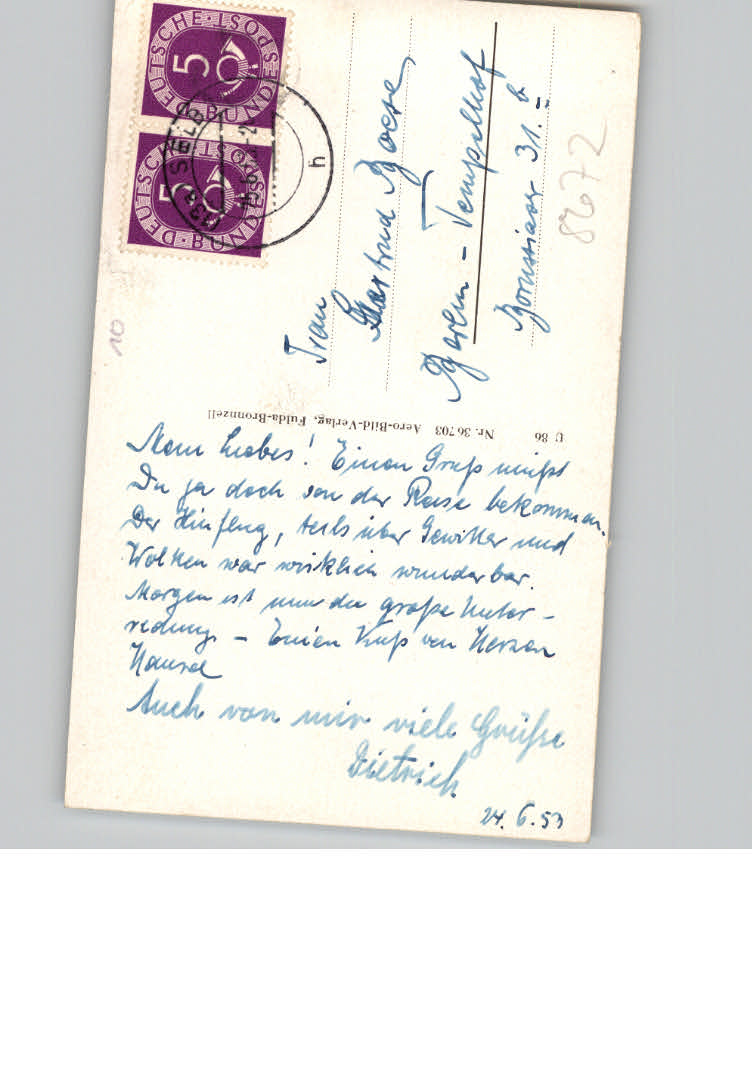 DEUTSCHE BUNDESPOST
5
DEUTSCHE BUNDESPOST
5
SELB
h
Frau
Gertrud Boese,
Berlin - Tempelhof
31. b
82672
10
U 86 Nr. 36703 Aero-Bild-Verlag, Fulda-Bronnzell
Mein Liebes! Einen Gruß mußt
Du ja doch von der Reise bekommen.
Der Hinflug, teils über Gewitter und
Wolken war wirklich wunderbar.
Morgen ist nun die große Unter-
redung. - Einen Kuß von Herzen
Auch von mir viele Grüße
Dietrich
24. 6. 53